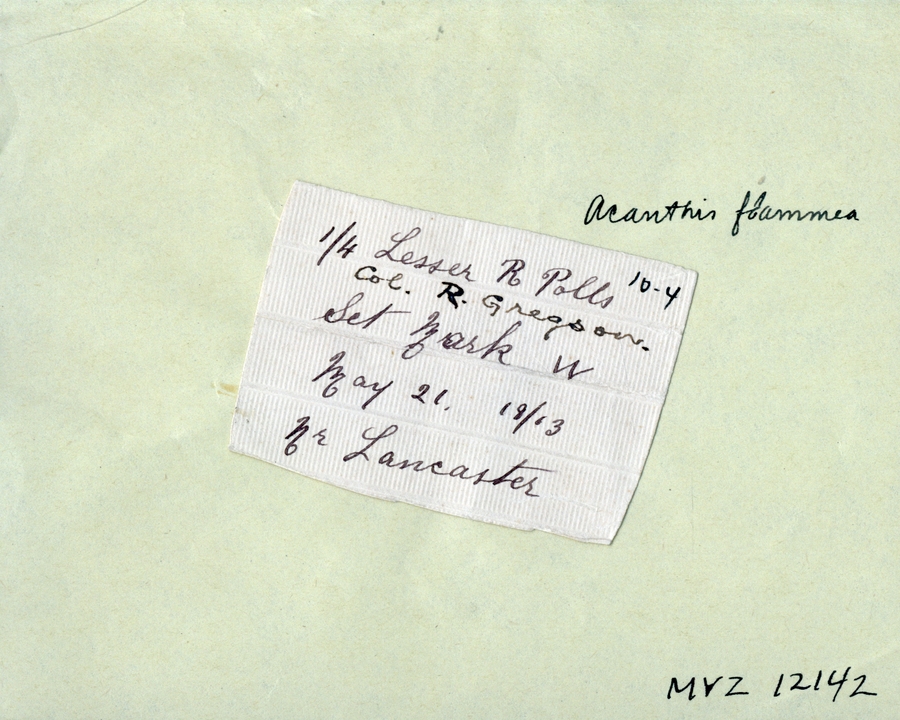 Acanthis flammea
1/4 Lesser R Polls 10-4
Col. R. Gregson.
Set Mark W
May 21. 19/13
Nr Lancaster
MVZ 12142